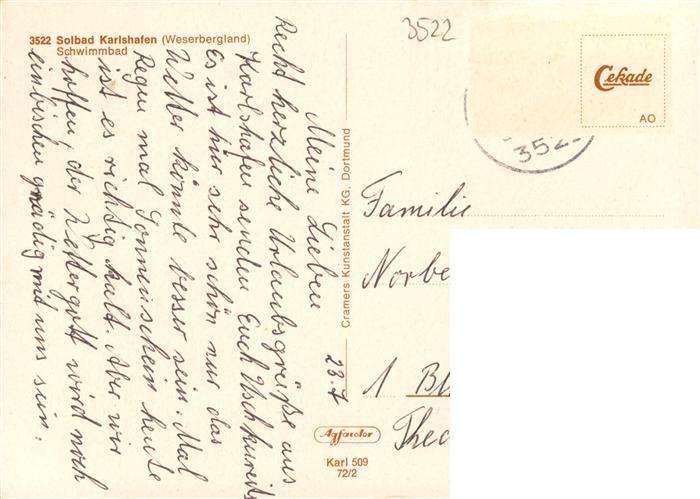 3522 Solbad Karlshafen (Weserbergland)
Schwimmbad
3522
Cekade
AO
3522
23.7
Meine Lieben
Recht herzliche Urlaubsgrüße aus
Karlshafen senden Euch
Es ist hir sehr schön nur das
Wetter könnte besser sein. Mal
Regen mal Sonnenschein heute
ist es richtig kalt. Aber wir
hoffen, der Wettergott wird noch
ein bischen gnädig mit uns sein.
Cramers Kunstanstalt KG, Dortmund
Familie
Norbe
1 Bl
Theo
Agfacolor
Karl 509
72/2